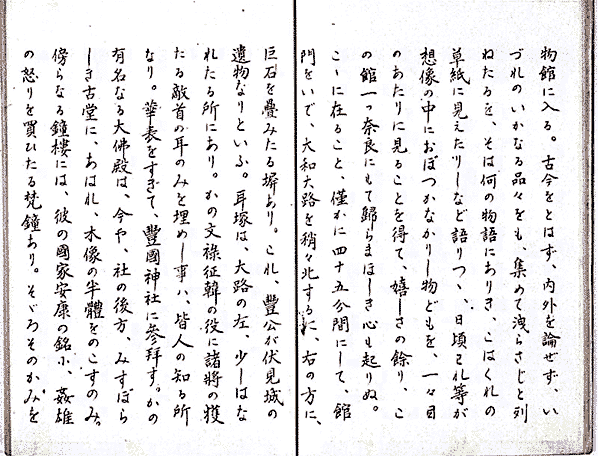 物館に入る。古今をとはず、内外を論ぜず、い
づれのいかなる品々をも、集めて洩らさじと列
ねたるを、そは何の物語にありき、こはくれの
草紙に見えたりしなど語りつゝ、日頃われ等が
想像の中におぼつかなかりし物どもを、一々目
のあたりに見ることを得て、嬉しさの餘り、こ
の館一つ奈良にもて歸らまほしき心も起りぬ。
こゝに在ること、僅かに四十五分間にして、館
門をいで、大和大路を稍々北するに、右の方に、
巨石を疊みたる塀あり。これ、豐公が伏見城の
遺物なりといふ。耳塚は、大路の左、少しはな
れたる所にあり。かの文祿征韓の役に諸將の獲
たる敵首の耳のみを埋めし事ハ、皆人の知る所
なり。華表をすぎて、豐國神社に參拜す。かの
有名なる大佛殿は、今や、社の後方、みすぼら
しき古堂に、あはれ、木像の半體をのこすのみ。
傍らなる鐘樓には、彼の國家安康の銘に、姦雄
の怒りを買ひたる梵鐘あり。そゞろそのかみを